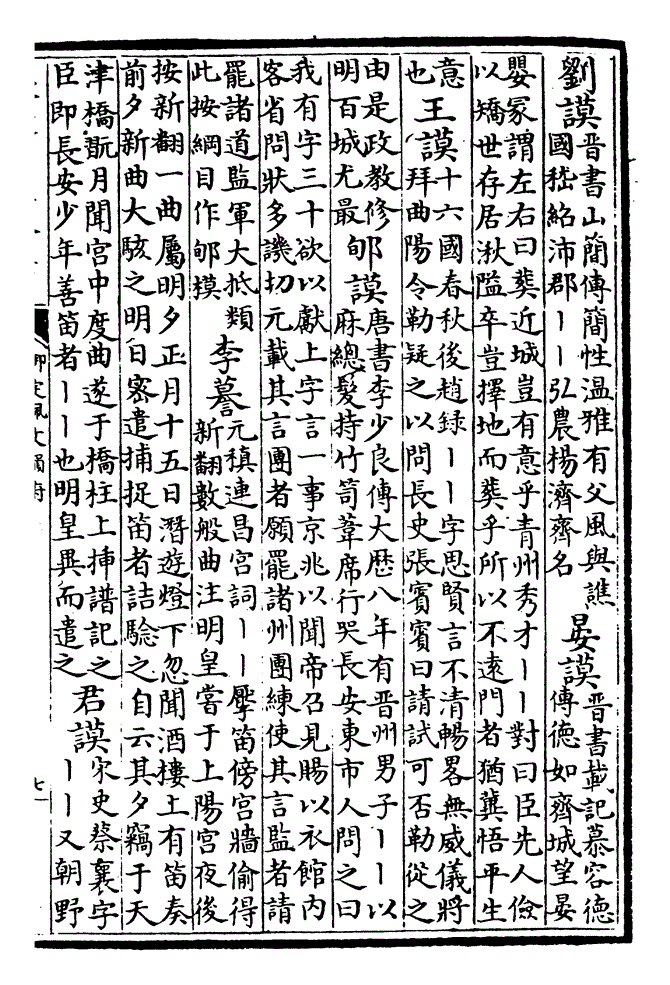 劉謨晉書山簡傳簡性溫雅有父風與譙
國嵇紹沛郡丨丨弘農楊濟齊名
晏謨晉書載記慕容德
傳德如齊城望晏
嬰冢謂左右曰葬近城豈有意乎青州秀才丨丨對曰臣先人儉
以矯世存居湫隘卒豈擇地而葬乎所以不遠門者猶冀悟平生
意
也
王謨十六國春秋後趙錄丨丨字思賢言不清暢畧無威儀將
拜曲陽令勒疑之以問長史張賓賓曰請試可否勒從之
由是政教修
明百城尤最
郇謨唐書李少良傳大歷八年有晉州男子丨丨以
麻總髮持竹笥葦席行哭長安東市人問之曰
我有字三十欲以獻上字言一事京兆以聞帝召見賜以衣館内
客省問狀多譏切元載其言團者願罷諸州團練使其言監者請
罷諸道監軍大抵類
此按綱目作郇模
李謩元稹連昌宮詞丨丨擪笛傍宮牆偷得
新翻數般曲注明皇嘗于上陽宮夜後
按新翻一曲屬明夕正月十五日潛遊燈下忽聞酒樓上有笛奏
前夕新曲大駭之明日密遣捕捉笛者詰驗之自云其夕竊于天
津橋翫月聞宮中度曲遂于橋柱上插譜記之
臣即長安少年善笛者丨丨也明皇異而遣之
君謨宋史蔡襄字
丨丨又朝野